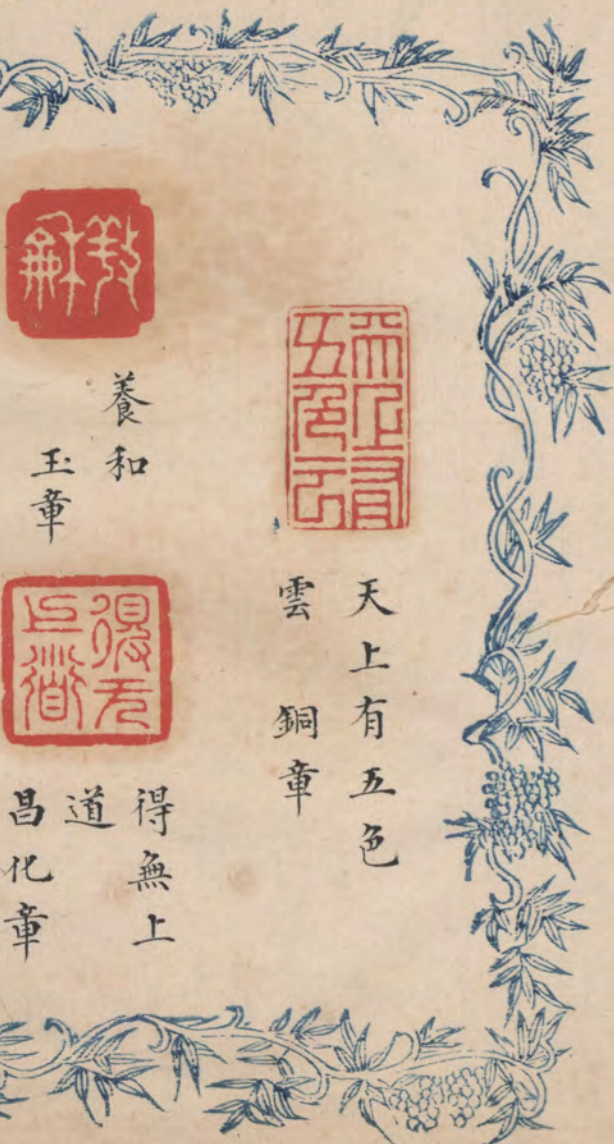 天上有五色云
天上有五色
雲 銅章
養和
養和
玉章
得无上道
得無上
道
昌化章